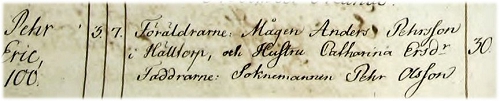 Pehr 3. 7. Föräldrarne: Mågen Anders Pehrsson
Eric, i Hälltorp, och Hustru Catharina Ersdr 30.
100. Faddrarne: Soknemannen Pehr Olsson